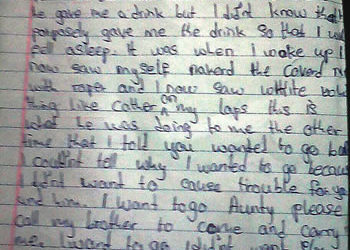 he gave me a drink but I did'd know that
purposely gave me the drink so that I
fell asleep. It was when I woke up I
now saw myself naked the coverd
with raper and I now saw whtite
thing like Cather on my laps this is
what he was doing to me the other
time that I told you wanted to go
I could'nt tell why I wanted to go becau
I did'nt want to cause trouble for yo
and him. I want to go Aunty please
call my brother to come and carry
me. I want to go